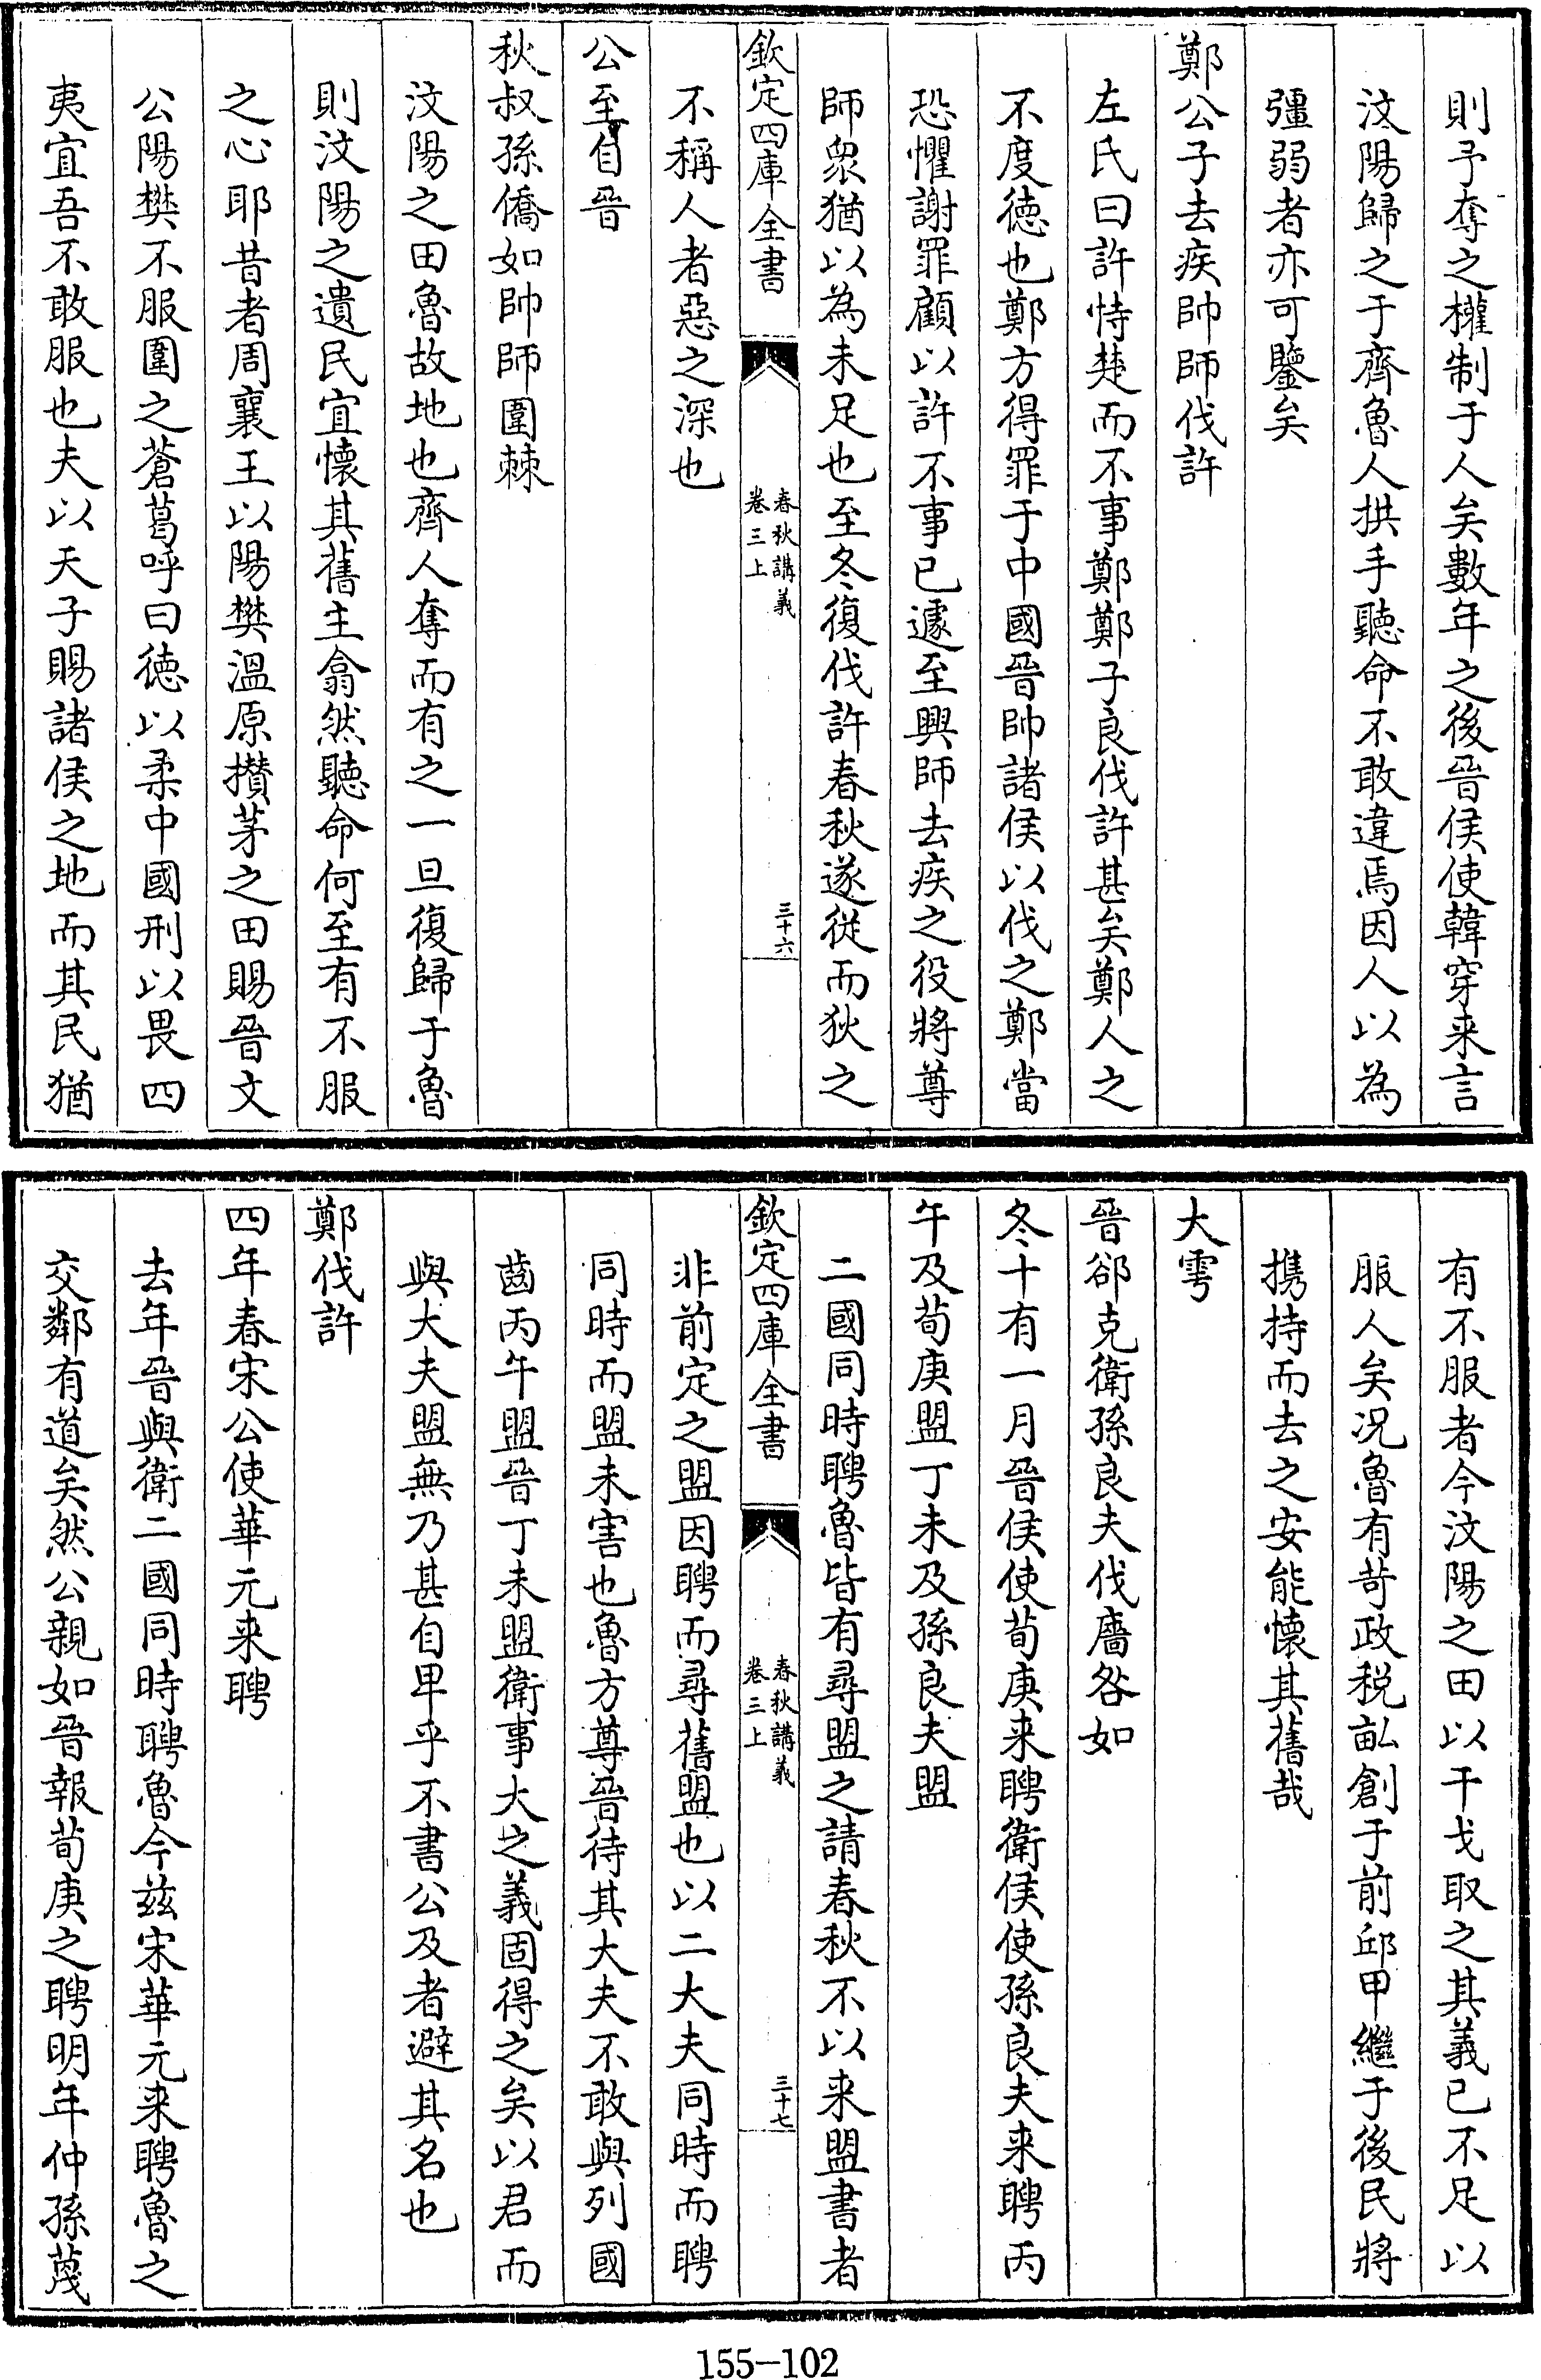 則予奪之權制于人矣數年之後晉侯使韓穿来言
汶陽歸之于齊魯人拱手聽命不敢違焉因人以為
彊弱者亦可鑒矣
鄭公子去疾帥師伐許
左氏曰許恃楚而不事鄭鄭子良伐許甚矣鄭人之
不度徳也鄭方得罪于中國晉帥諸侯以伐之鄭當
恐懼謝罪顧以許不事已遽至興師去疾之役將尊
師衆猶以為未足也至冬復伐許春秋遂從而狄之
欽定四庫全書
春秋講義
卷三上
三十六
不稱人者惡之深也
公至自晉
秋叔孫僑如帥師圍棘
汶陽之田魯故地也齊人奪而有之一旦復歸于魯
則汶陽之遺民宜懷其舊主翕然聽命何至有不服
之心耶昔者周襄王以陽樊溫原攅茅之田賜晉文
公陽樊不服圍之蒼葛呼曰徳以柔中國刑以畏四
夷宜吾不敢服也夫以天子賜諸侯之地而其民猶
有不服者今汶陽之田以干戈取之其義已不足以
服人矣况魯有苛政税畝創于前邱甲繼于後民將
携持而去之安能懷其舊哉
大雩
晉郤克衛孫良夫伐廧咎如
冬十有一月晉侯使荀庚来聘衛侯使孫良夫来聘丙
午及荀庚盟丁未及孫良夫盟
二國同時聘魯皆有尋盟之請春秋不以来盟書者
欽定四庫全書
春秋講義
卷三上
三十七
非前定之盟因聘而尋舊盟也以二大夫同時而聘
同時而盟未害也魯方尊晉待其大夫不敢與列國
齒丙午盟晉丁未盟衛事大之義固得之矣以君而
與大夫盟無乃甚自卑乎不書公及者避其名也
鄭伐許
四年春宋公使華元来聘
去年晉與衛二國同時聘魯今兹宋華元来聘魯之
交鄰有道矣然公親如晉報荀庚之聘明年仲孫蔑
155-102